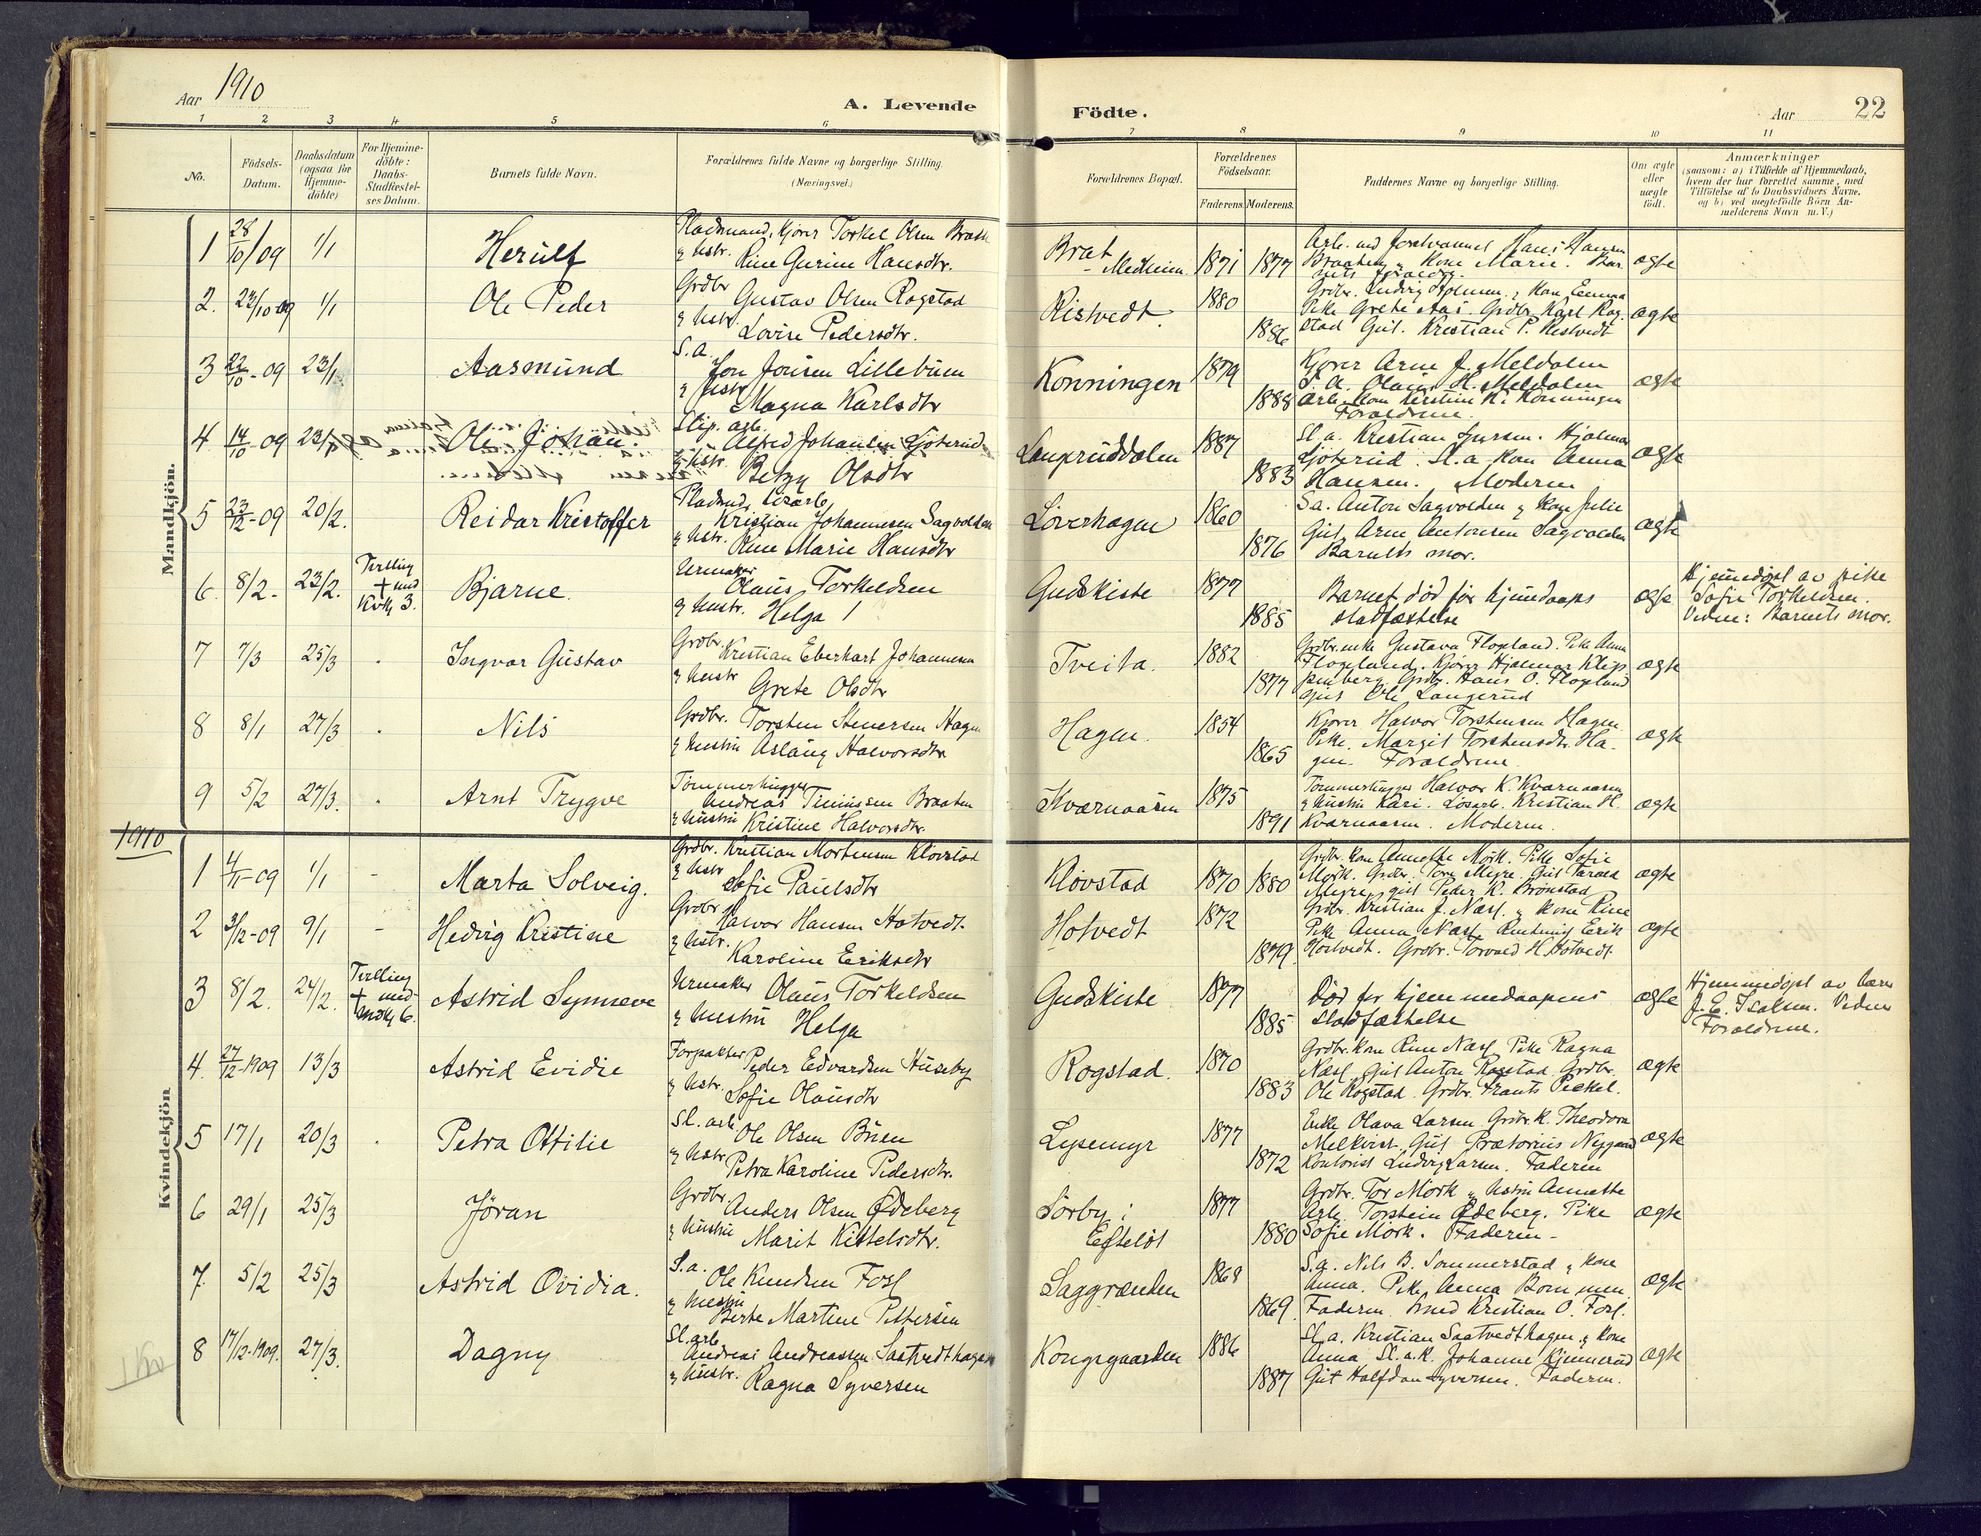 Aar 1910
A. Levende
Födte.
Aar
22
1 2 3 4 5 6 7 8 9 10 11
No.
Födsels-
Datum.
Daabsdatum
(ogsaa for
Hjemme-
döbte)
For Hjemme-
döbte:
Daabs-
Stadfæstel-
ses Datum.
Barnets fulde Navn.
Forældrenes fulde Navne og borgerlige Stilling.
(Næringsvei.)
Forældrenes Bopæl.
Forældrenes
Födselsaar.
Faderens.
Moderens.
Faddernes Navne og borgerlige Stilling.
Om ægte
eller
uægte
födt.
Anmærkninger
(saasom: a) i Tilfælde af Hjemmedaab,
hvem der har forrettet samme, med
Tilföielse af to Daabsvidners Navne,
og b) ved uægtefödte Börn An-
melderens Navn m. V.)
Mandkjön.
1 28/10/09 1/1 Herulf
Pladsmand, kjører Torkel Olsen
& hstr. Rine Gurine Hansdtr.
Brat
- Medheim. 1871 1877
Arb. Hans Hansen
Braathen & kone Marie. Bar-
nets forældre. ægte
2. 23/10-09 1/1 Ole Peder
Grdbr. Gustav Olsen Rogstad
& hstr. Lovise Pedersdtr.
Ristvedt. 1880 1886
Grdbr. Ludvig & kone Emma
Pike Grete Aas. Grdbr. Karl Rog-
stad Gut. Kristian P. Ristvedt ægte
3 22/10-09 23/1 Aasmund
S.a. Jon Jonsen Lillebuen
& hstr. Magna Karlsdtr
Konningen 1879 1888
Kjører Arne J. Meldalen
S.a. Olaus H. Meldalen
Arb. kone Kirstine K. Konningen
Forældrene. ægte
4 14/10-09 23/1 Ole Johan.
Slip. arb. Alfred Johansen Ljøterud
& hstr. Betzy Olsdtr
Langruddalen 1887 1883
Sl.a. Kristian Hjalmar
Ljøterud. Sl.a kone Anna
Hansen. Moderen ægte
5 23/12-09 20/2. Reidar Kristoffer
Kristian Johannesen Sagvolden
& hstr. Rine Marie Hansdtr
Løverhagen 1860 1876
Sa. Anton Sagvolden & kone Julie
Gut Arne Antonsen Sagvolden
Barnets mor. ægte
6. 8/2. 23/2. Tvilling
+ med
Kvk 3. Bjarne.
Urmaker Olaus Torkeldsen
& hustr. Helga
Gudskiste 1877 1885
Barnet død før hjemdaaps
stadfæstelse ægte
Hjemdøpt av pike
Sofie Torkeldsen.
Vidne: Barnets mor.
7 7/3 25/3 Ingvar Gustav
Grdbr. Kristian Eberhart Johannesen
& hustr Grete Olsdtr
Tveita. 1882 1877
Grdbr.enke Gustava Flogeland. Pike Anna
Flogeland. Kjører Hjalmar Klip-
penberg. Grdbr. Hans O. Flogland
Gut Ole Langerud ægte
8 8/1 27/3 Nils
Grdbr. Torsten Stenersen Hagen
& hustru Aslaug Halvorsdtr
Hagen. 1854 1865
Kjører Halvor Torstensen Hagen
Pike. Margit Torstensdtr. Ha-
gen. Forældrene. ægte
9 5/2 27/3. Arnt Trygve
Tømmerhugger Andreas Braaten
& hustru Kristine Halvorsdtr.
Kværnaasen 1875 1891
Tømmerhugger Halvor K. Kvarnaasen
& hustru Kari. Løsarb. Kristian H.
Kvarnaasen. Moderen. ægte
1910
Kvindekjön
1 4/11-09 1/1 - Marta Solveig.
Grdbr. Kristian Mortensen Kløvstad
& hstr Sofie Paulsdtr
Kløvstad 1870 1880
Grdbr. kone Annethe Mørk. Pike Sofie
Mørk. Grdbr. Tore Myre. Gut Tarald
Myre, gut Peder K. Brønstad ægte
2 31/12-09 9/1 - Hedvig Kristine
Grdbr. Halvor Hansen Hotvedt.
& hstr. Karoline Eriksdtr
Hotvedt 1872 1879.
Grdbr. Kristian J. Næsl. & kone Rine
Pike Anna Næsl Erik
Hotvedt. Grdbr. Torvald H. Hotvedt. ægte
3 8/2. 24/2. Tvilling
+ med
mdk 6. Astrid Synneve
Urmaker Olaus Torkeldsen
& hustru Helga
Gudskiste 1877 1885
Død før hjemmedaapens
stadfæstelse ægte
Hjemmedøpt av Lærer
J. E. Isaksen. Vidne
Forældrene.
4. 27/12-1909 13/3 Astrid Evidie
Forpakter Peder Edvardsen Huseby
& hstr. Sofie Olausdtr
Rogstad. 1870 1883
Grdbr. kone Rine Næsl Pike Ragna
Næsl Gut Anton Rogstad Grdbr.
Ole Rogstad. Grdbr. Frants ægte
5 17/1 20/3 Petra Ottilie
Sl. arb Ole Olsen Buen
& hstr Petra Karoline Pedersdtr.
Lysemyr 1877 1872
Enke Olava Larsen. Grdbr. K. Theodora
Melkvist. Gut Prætorius Nygaard
Kontorist Ludvig Larsen. Faderen ægte
6 29/1 25/3 Jöran
Grdbr. Anders Olsen Ødeberg
& hustru Marit Kittelsdtr.
Sørby i
Efteløt 1877 1880
Grdbr. Tor Mørk & hustru Annethe
Arb. Torstein Ødeberg. Pike
Sofie Mørk. Faderen - ægte
7. 5/2 25/3 Astrid Ovidia.
S.a. Ole Knudsen Fosl
& hustru Berte Martine Pettersen
Saggrænden 1868 1869.
S.a. Nils B. Sommerstad & kone
Anna. Pike Anna Bommen.
Faderen. Smed Kristian O. Fosl. ægte
8 17/12-1909. 27/3. Dagny
Sl. arb Andreas Andreassen Saatvedthagen
& hustr. Ragna Syversen
Kongsgaarden 1886 1887
Sl.a. Kristian Saatvedthagen & kone
Anna Sl.a.k. Johanne Kjennerud
Gut Halfdan Syversen. Faderen. ægte